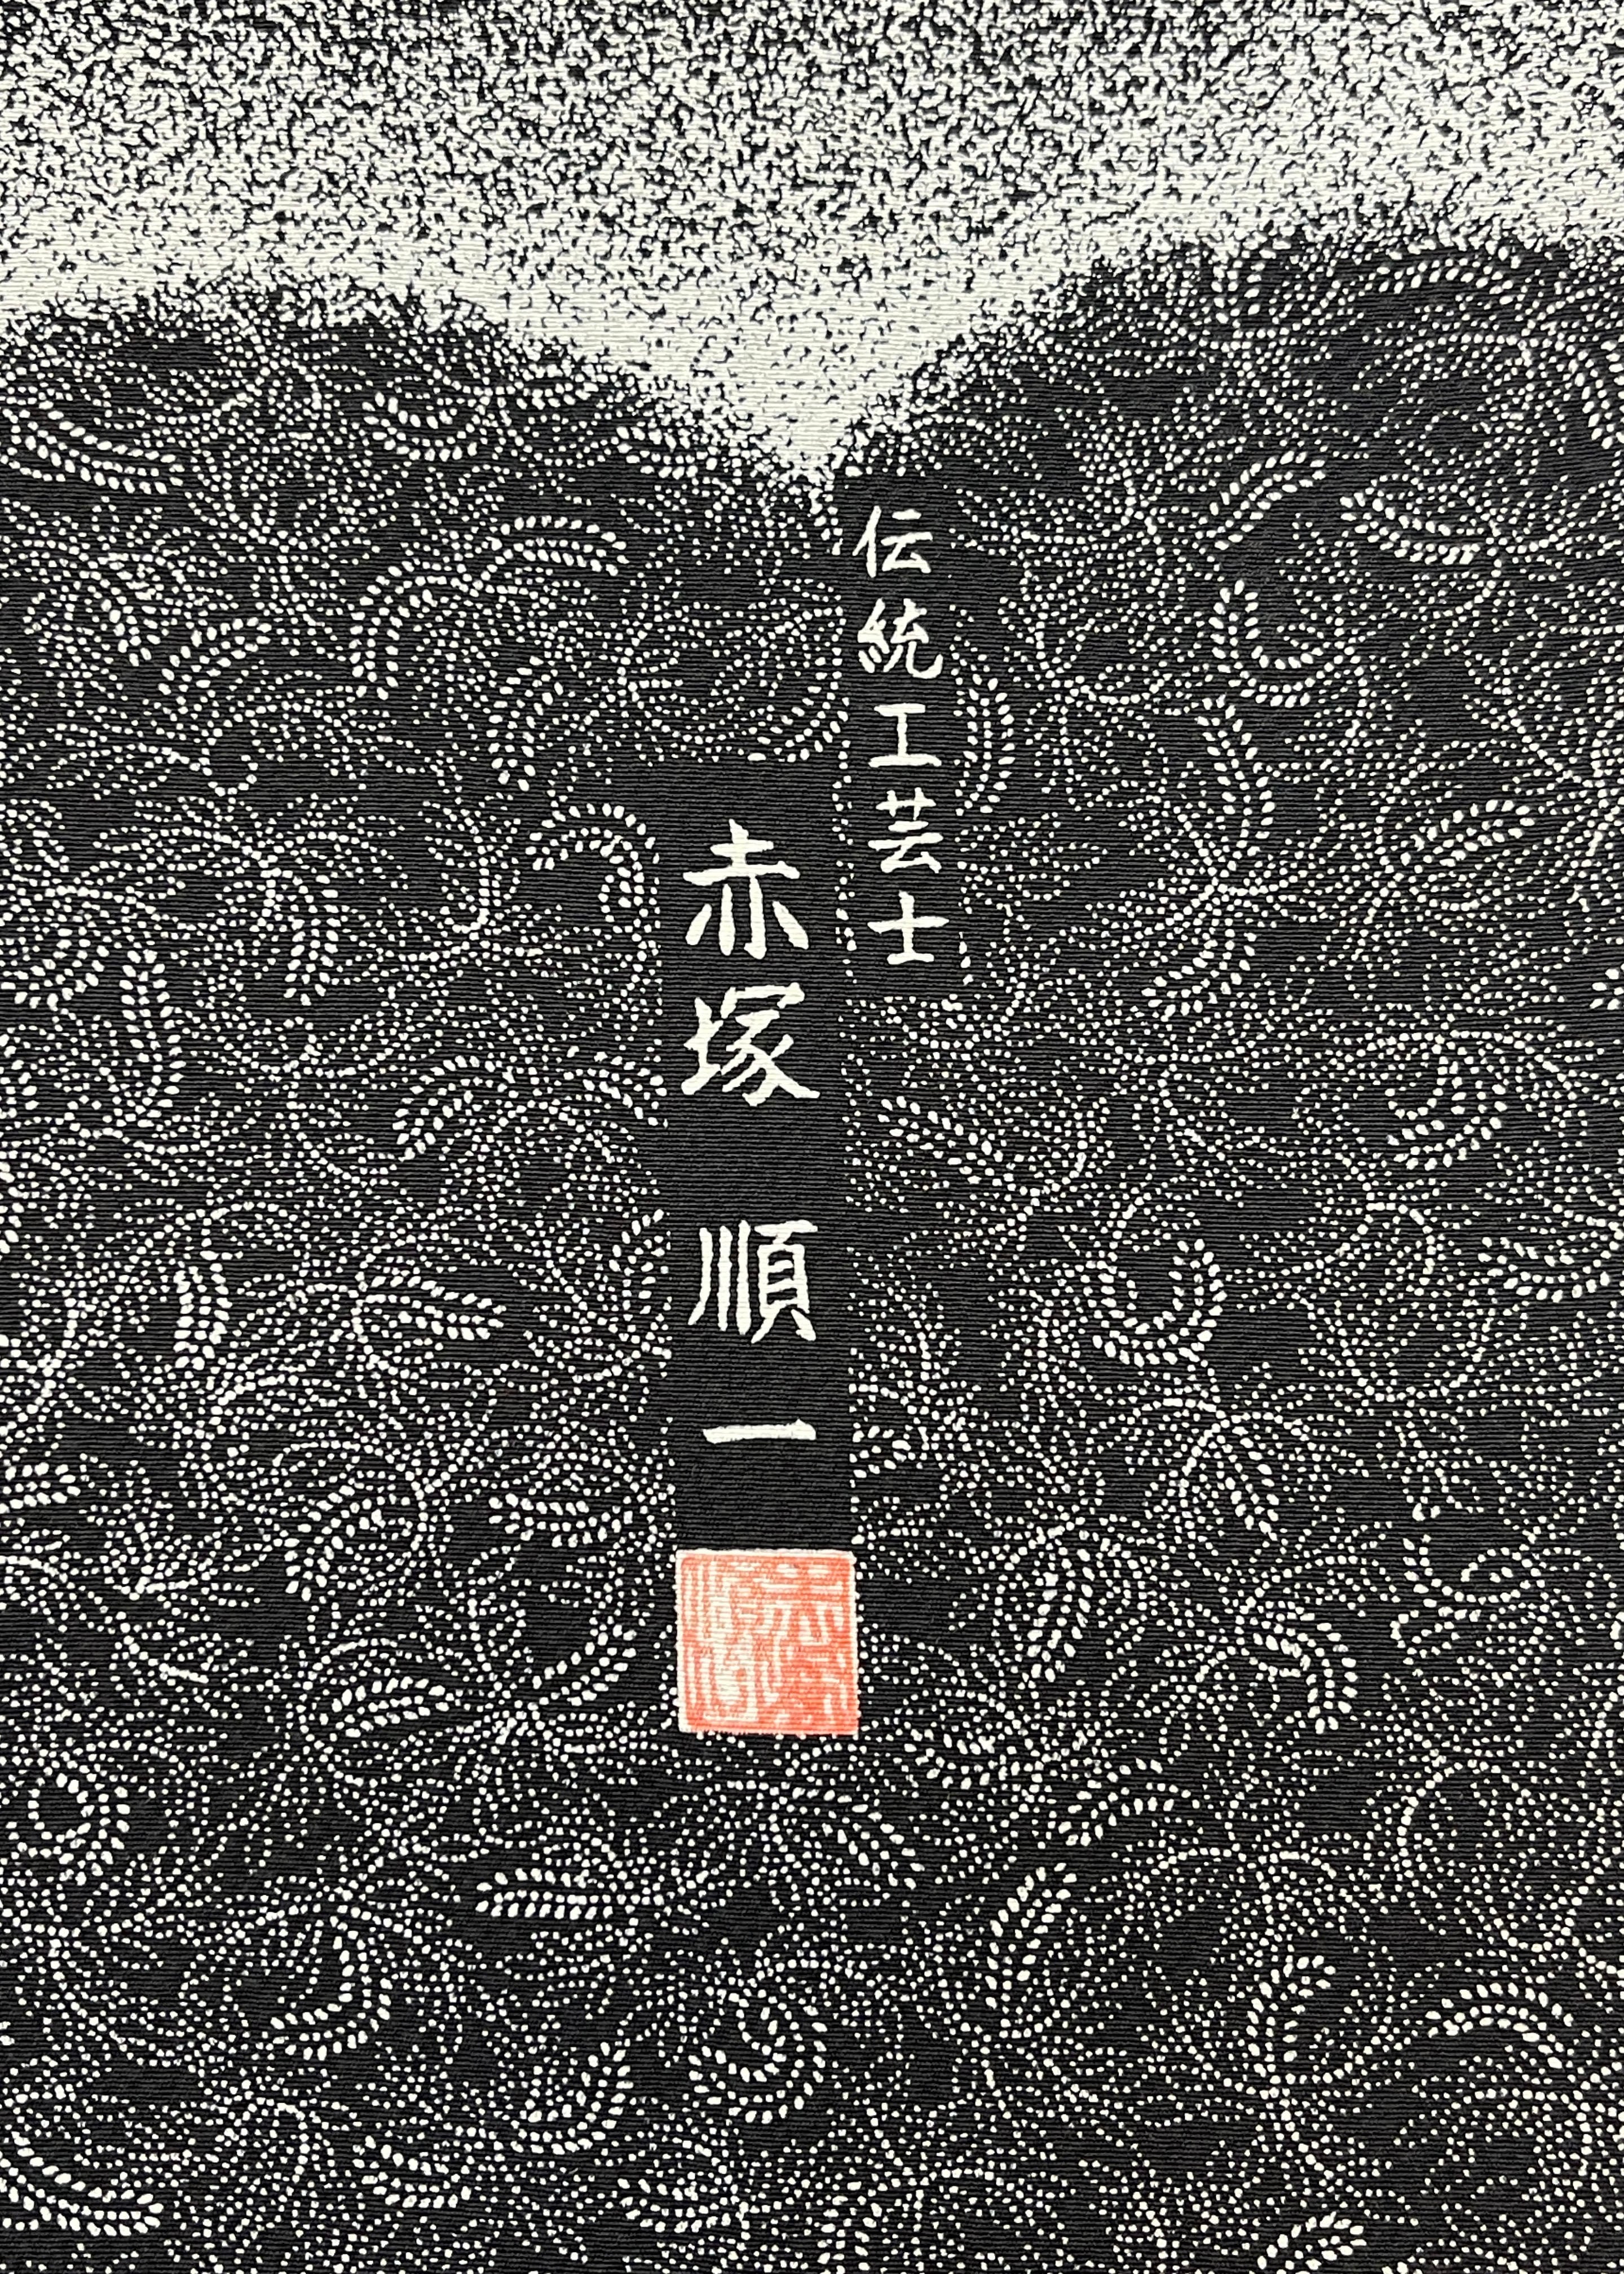 伝統工芸士
赤塚 順一